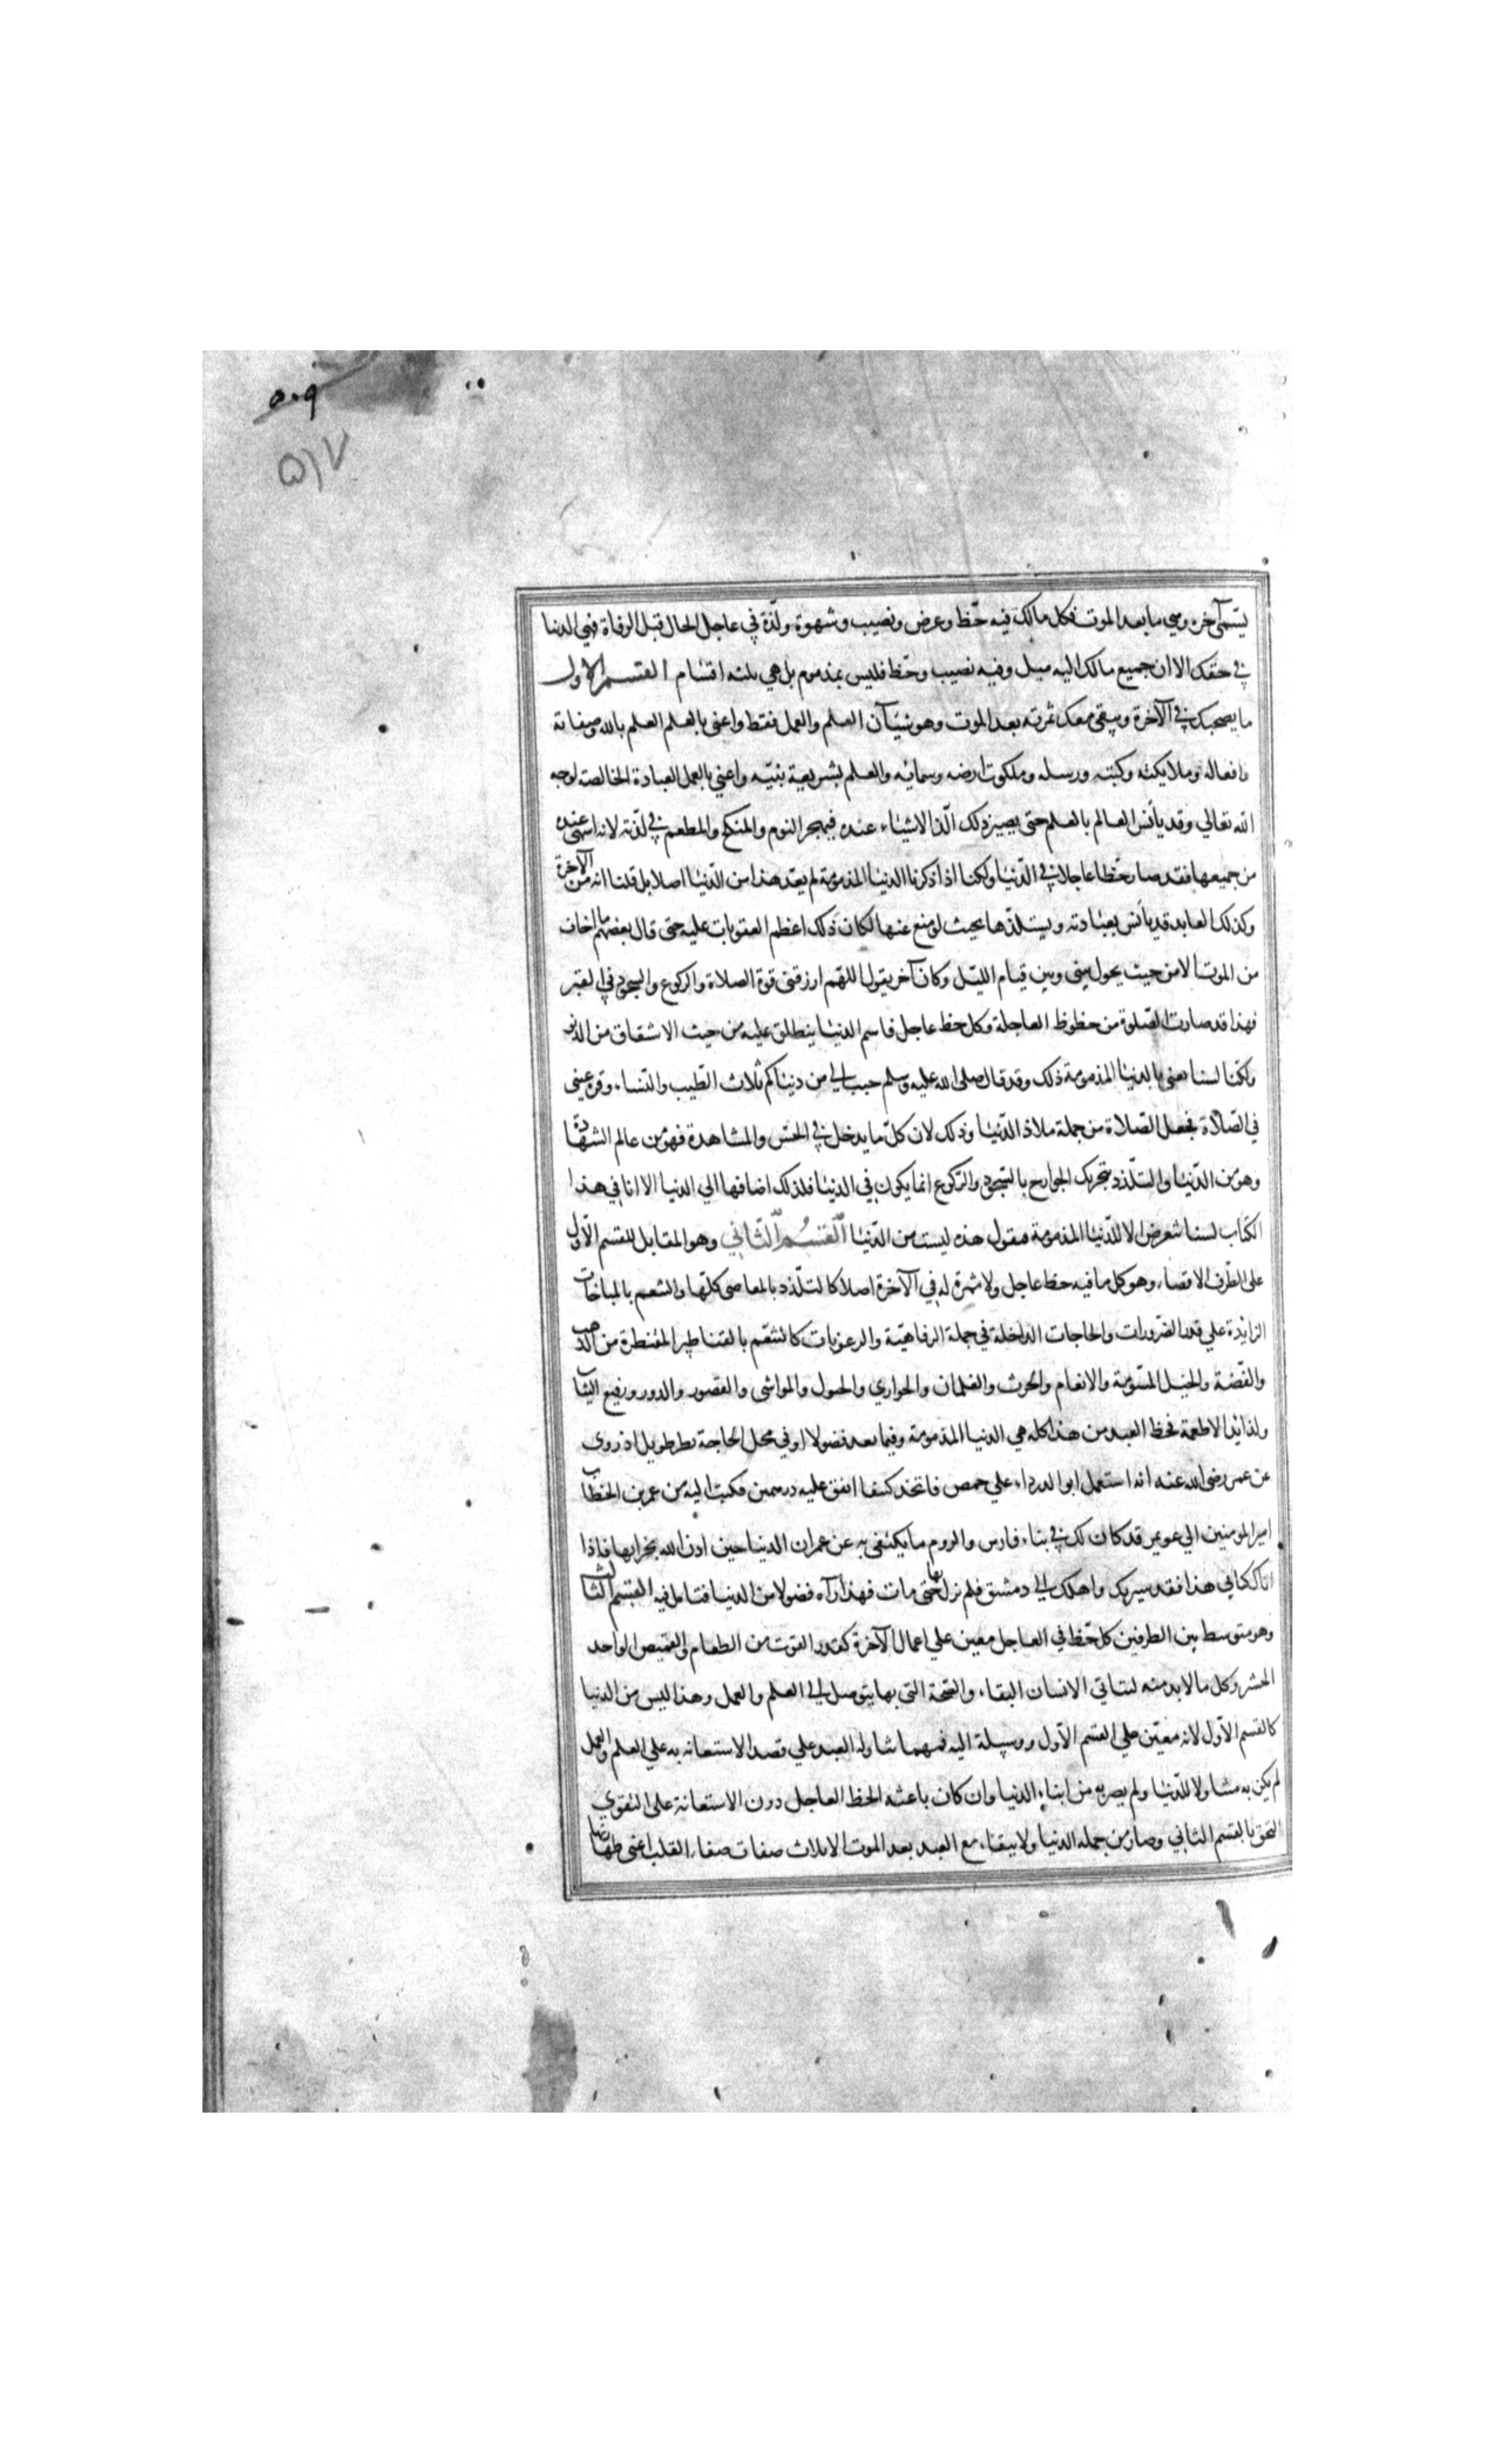 ٥٠٩
٥١٧
يسمى آخرة وهي ما بعد الموت فكل مالك فيه حظ وعرض ونصيب وشهوة ولذة في عاجل الحال قبل الوفاة فهي الدنيا
في حقك الا ان جميع مالك اليه ميل وفيه نصيب وحظ فليس بمذموم بل هي ثلثه اقسام القسم الاول
ما يصحبك في الآخرة ويبقى معك ثمرته بعد الموت وهو شيئان العلم والعمل فقط واعنى بالعلم العلم بالله وصفاته
وافعاله وملايكته وكتبه ورسله وملكوت ارضه وسمائه والعلم بشريعة نبيه واعني بالعمل العبادة الخالصة لوجه
الله تعالي وقد يأنس العالم بالعلم حتى يصير ذلك الذ الاشياء عنده فيهجر النوم والمنكح والمطعم في لذته لانه اشهى عنده
من جميعها فقد صار حظا عاجلا في الدنيا ولكنا اذا ذكرنا الدنيا المذمومة لم يعد هذا من الدنيا اصلا بل قلنا انه من الآخرة
وكذلك العابد قد يأنس بعبادته ويستلذها بحيث لو منع عنها لكان ذلك اعظم العقوبات عليه حتى قال بعضهم ما اخاف
من الموت الا من حيث يحول بيني وبين قيام الليل وكان آخر يقول اللهم ارزقنى قوة الصلاة والركوع والسجود في القبر
فهذا قد صارت الصلوة من حظوظ العاجلة وكل حظ عاجل فاسم الدنيا ينطلق عليه من حيث الاشقاق من الدنو
ولكنا لسنا نعنى بالدنيا المذمومة ذلك وقد قال صلى الله عليه وسلم حبب الي من دنياكم ثلاث الطيب والنساء وقرة عينى
في الصلاة فجعل الصلاة من جملة ملاذ الدنيا وذلك لان كل ما يدخل في الحس والمشاهدة فهو من عالم الشهادة
وهو من الدنيا والتلذذ بتحريك الجوارح بالسجود والركوع انما يكون في الدنيا فلذلك اضافها الي الدنيا الا انا في هذا
الكتاب لسنا نتعرض الا للدنيا المذمومة فنقول هذه ليست من الدنيا القسم الثاني وهو المقابل للقسم الأول
على الطرف الاقصاء وهو كل ما فيه حظ عاجل ولا ثمرة له في الآخرة اصلا كالتلذذ بالمعاصى كلها والتنعم بالمباحات
الزائدة علي قدر الضرورات والحاجات الداخلة في جملة الرفاهية والرعونات كالتنعم بالقناطير المقنطرة من الذهب
والفضة والخيل المسومة والانعام والحرث والغلمان والجواري والخيول والمواشى والقصور والدور ورفيع الثياب
ولذائذ الاطعمة فحظ العبد من هذا كله هي الدنيا المذمومة وفيما يعد فضولا او في محل الحاجة نظر طويل اذ روى
عن عمر رضى الله عنه انه استعمل ابو الدرداء علي حمص فاتخذ كنيفا انفق عليه درهمين فكتب اليه من عمر بن الخطاب
امير المومنين الي عويمر قد كان لك في بناء فارس والروم ما يكتفى به عن عمران الدنيا حين اذن الله بخرابها فاذا
اتاك كتابي هذا فقد سيرتك واهلك الي دمشق فلم نزل بها حتى مات فهذا رآه فضولا من الدنيا فتامل فيه القسم الثالث
وهو متوسط بين الطرفين كل حظ في العاجل معين علي اعمال الآخرة كقدر القوت من الطعام والقميص الواحد
الخشن وكل ما لابد منه لتتاتي الانسان البقاء والصحة التى بها يتوصل الي العلم والعمل وهذا ليس من الدنيا
كالقسم الأول لانه معين علي القسم الأول ووسيلة اليه فمهما تناوله العبد علي قصد الاستعانه به علي العلم والعمل
لم يكن به متناولا للدنيا ولم يصر به من ابناء الدنيا وان كان باعثه الحظ العاجل دون الاستعانة على التقوي
التحق بالقسم الثاني وصار من جمله الدنيا ولا يبقاء مع العبد بعد الموت الا ثلاث صفات صفاء القلب اعنى طهارته